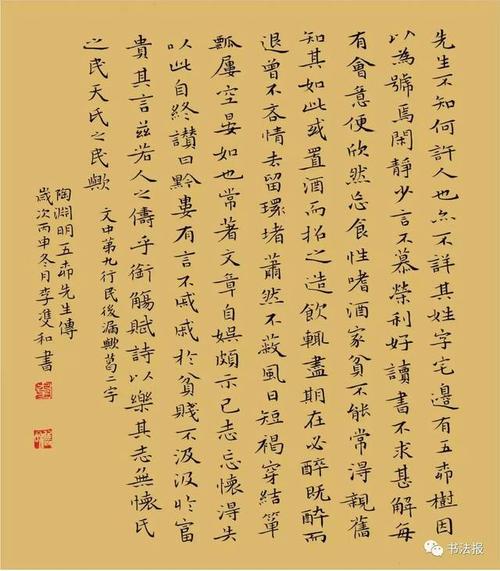 先生不知何許人也亦不詳其姓字宅邊有五柳樹因
以為號焉閑靜少言不慕榮利好讀書不求甚解每
有會意便欣然忘食性嗜酒家貧不能常得親舊
知其如此或置酒而招之造飲輒盡期在必醉既醉而
退曾不吝情去留環堵蕭然不蔽風日短褐穿結簞
瓢屢空晏如也常著文章自娛頗示己志忘懷得失
以此自終讚曰黔婁有言不戚戚於貧賤不汲汲於富
貴其言茲若人之儔乎銜觴賦詩以樂其志無懷氏
之民天氏之民歟
文中第九行民後漏歟葛二字
陶淵明五柳先生傳
歲次丙申冬月李雙和書
书法报